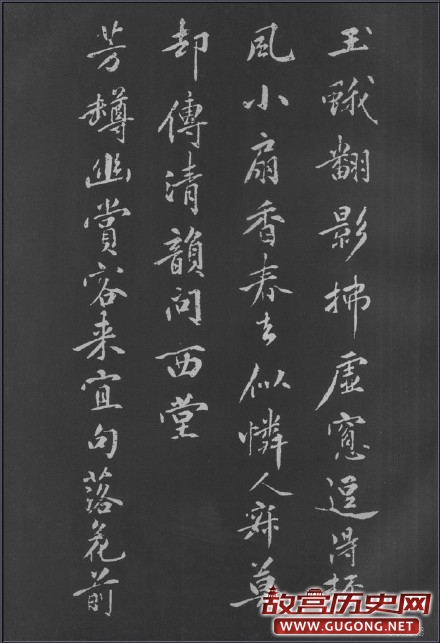 玉蛾翻影拂虛窓逗得
風小扇香春去似憐人寂莫
却傳清韻問西堂
芳罇幽賞客来宜句落花前
故宫历史网
WWW.GUGONG.NET